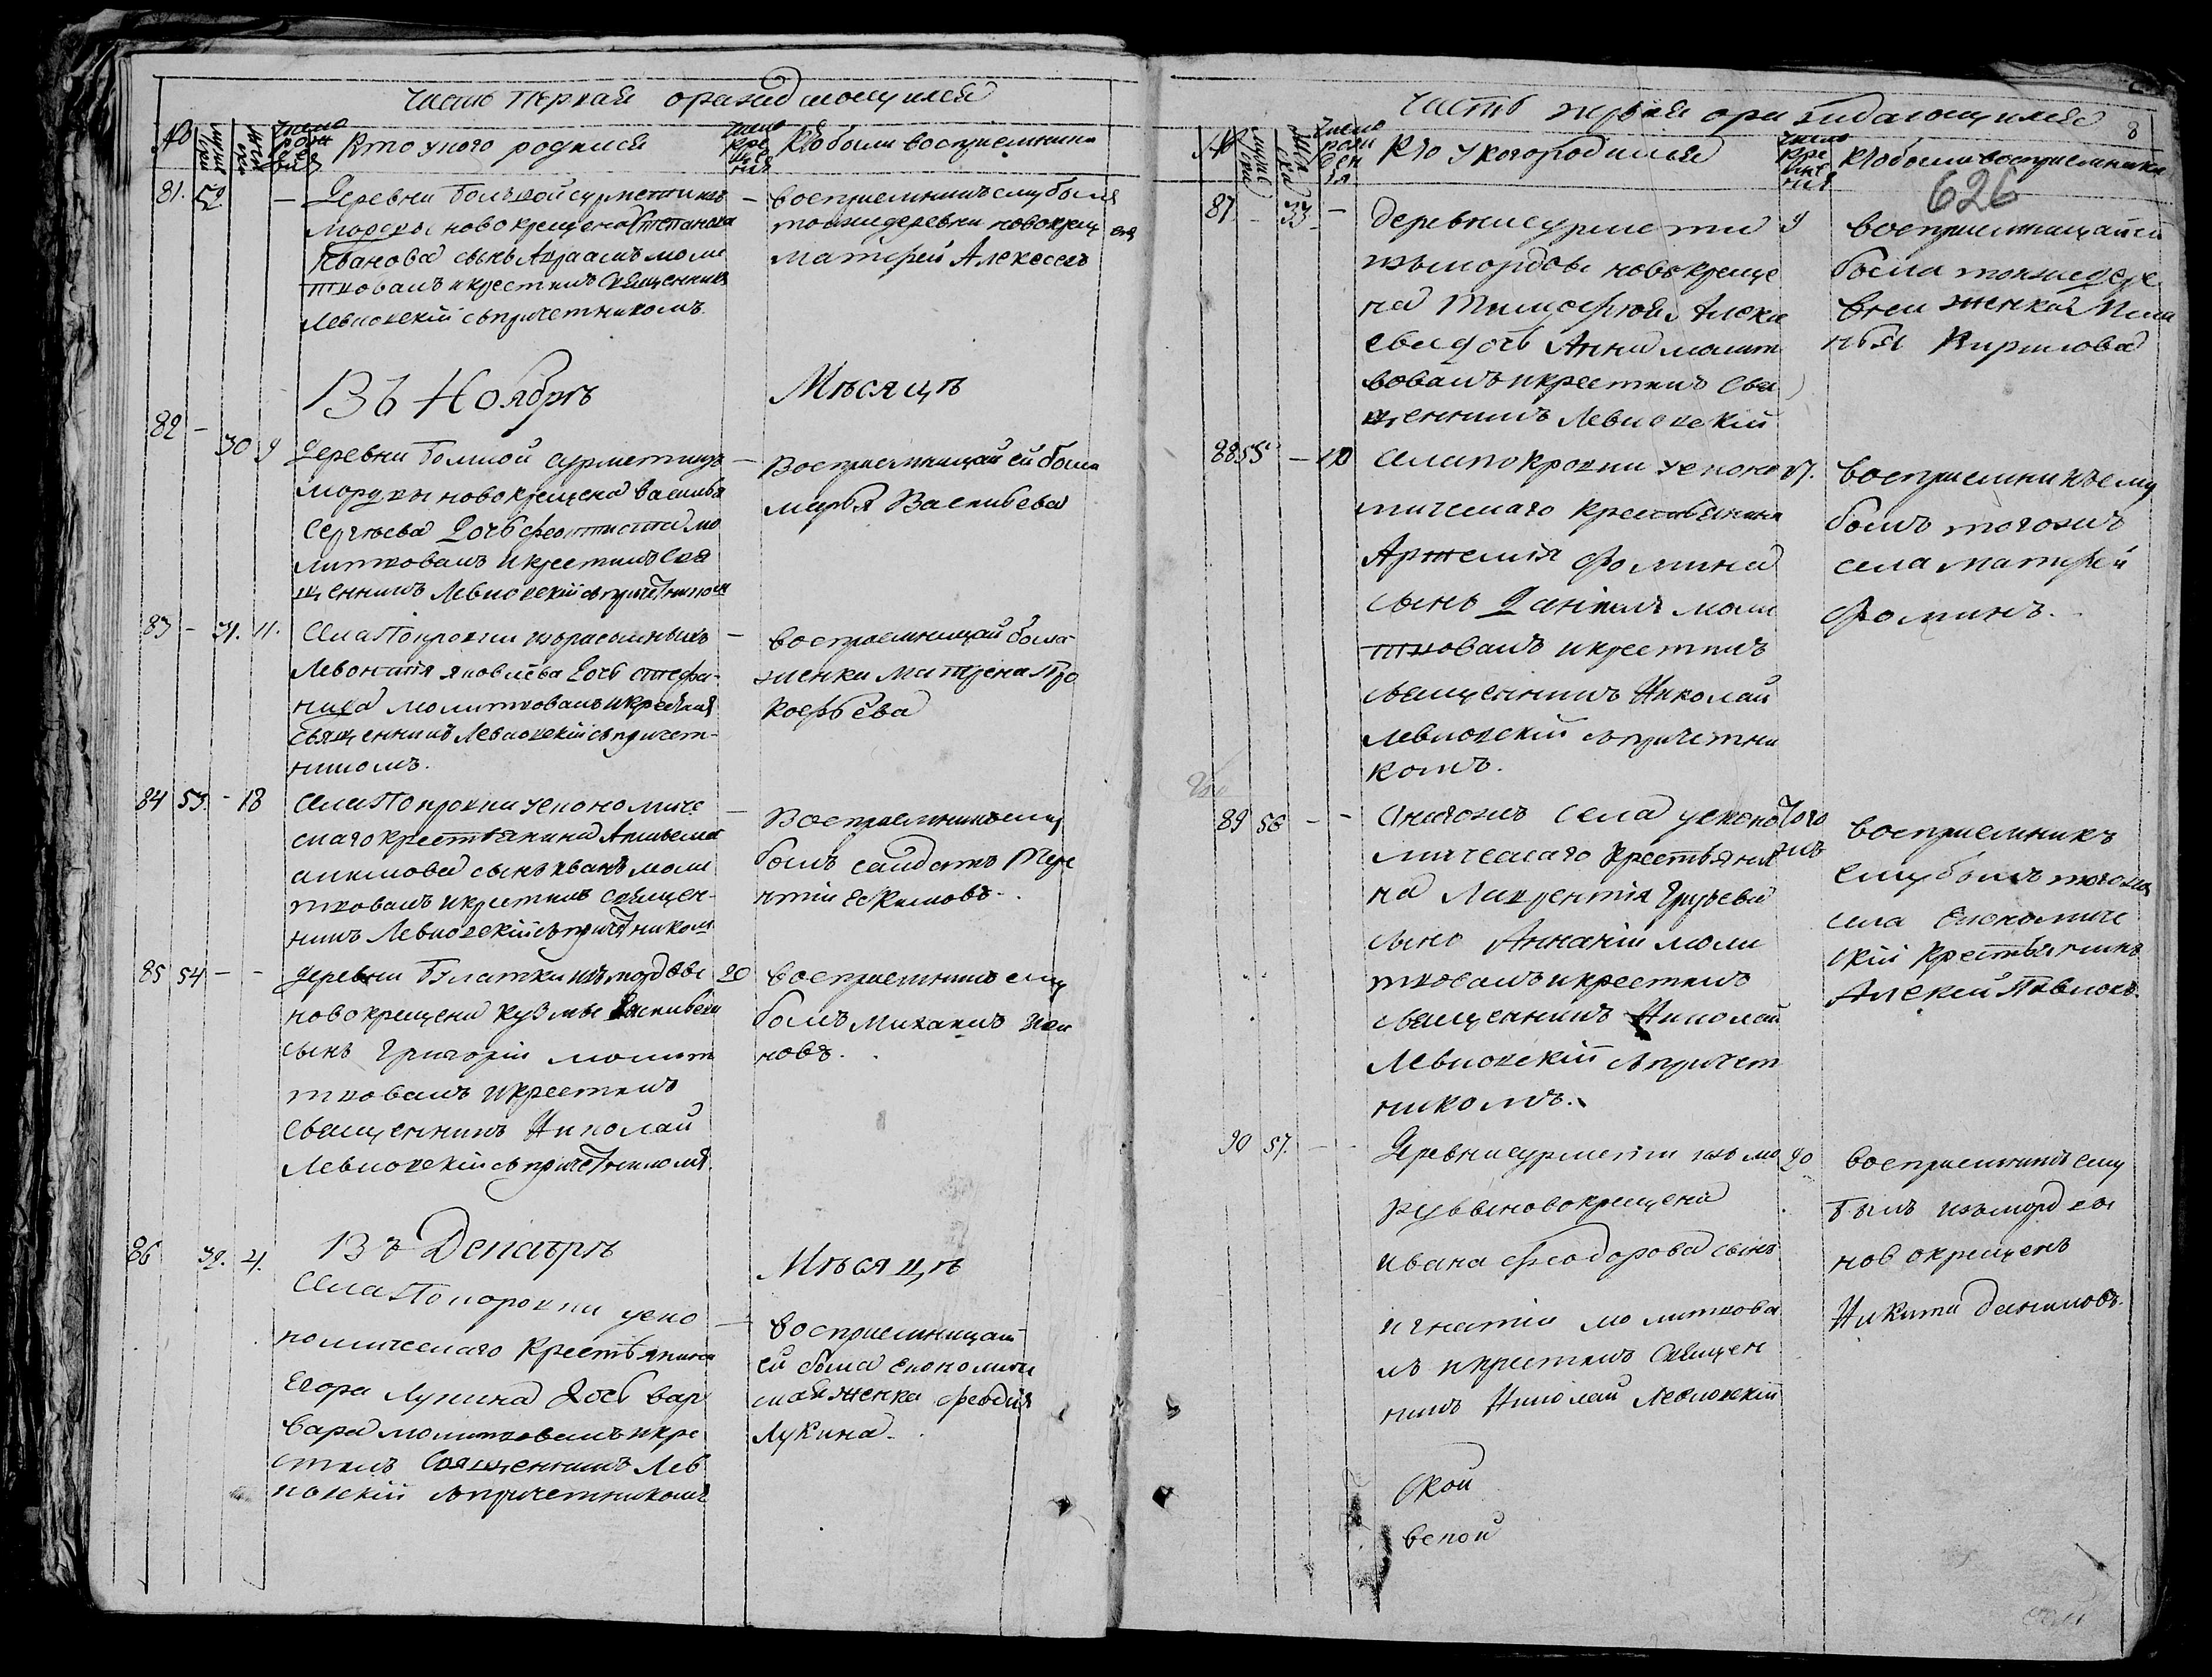 часть первая о раждающихся
№
мужеска
женска
число рожденія
Кто у кого родился
число крещенія
Кто были восприемники
81. 52. — Деревни Большой сурметиизъ
Мордвы новокрещена Степана
Иванова сынъ Авраамъ моли
твовалъ и крестилъ священникъ
Левповскій съ причетникомъ.
— восприемникъ ему былъ
тоежъ деревни новокрещенъ
Матфей Алексеевъ
Въ Ноябрѣ Мѣсяцѣ
82 — 30 9 Деревни Большой сурмети изъ
мордвы новокрещена василья
Сергѣева дочь феоктиста мо
литвовалъ и крестилъ свя
щенникъ Левповскій съ причетникомъ
— Восприемницай ей была
марья Васильева
83 — 31. 11. Села Покровки изъ
Левонтия яковлева дочь стефа-
нида молитвовалъ и крестилъ
священникъ Левповскій съ причет-
никомъ.
— восприемницай была
женка Матрена Про
кофьева
84 53. — 18 Села Покровки економиче
скаго крестьянина
сынъ иванъ моли
твовалъ и крестилъ священ-
никъ Левповскій съ причетникомъ
— Восприемникъ ему
былъ салдатъ Тере
нтій
85 54 — — деревни Булатки изъ мордвы
новокрещена кузмы Васильева
сынъ Григорій молит
твовалъ и крестилъ
священникъ Николай
Левповскій съ причетникомъ.
20 восприемникъ ему
былъ Михаилъ Ива
новъ.
Въ Декабрѣ Мѣсяцѣ
86 32. 4 Села Покровки уеко
номическаго Крестьянина
Егора Лукина дочь вар
вара молитвовалъ и кре
стилъ священникъ Лев
повскій съ причетникомъ
— восприемницай
ей была економиче
ская женка
Лукина.
часть первая о раждающихся
8
626
№
мужеска
женска
число рожденія
Кто у кого родился
число крещенія
Кто были восприемники
87. — 33. — деревни сурмети
изъ мордвы новокреще
на Тимофѣя Алекс
ева дочь Анна молит
вовалъ и крестилъ свя
щенникъ Левповскій
9 восприемницай ей
была тоежъ дере
вни женка
Кирилова
88 55 — 10 села покровки уеконо
мическаго крестьянина
Артемія Фомина
сынъ Даніилъ моли
твовалъ и крестилъ
священникъ Николай
Левповскій съ причетни
комъ.
17. восприемникъ ему
былъ тогожъ
села матфей
Фоминъ.
89 56 — — онагожъ села уеконо
мическаго крестьяни
на Лаврентія
сынъ Ананій моли
твовалъ и крестилъ
священникъ Николай
Левповскій съ причет
никомъ.
Того жъ
восприемникъ
ему былъ тогожъ
села Економиче
скій Крестьянинъ
Алексей Павловъ.
90 57. — — Деревни сурмети изъ мо
рдвы новокрещена
ивана феодорова сынъ
игнатій молитвова
лъ и крестилъ священ
никъ Николай Левповскій
20 восприемникъ ему
былъ изъ мордвы
новокрещенъ
Никита даниловъ.